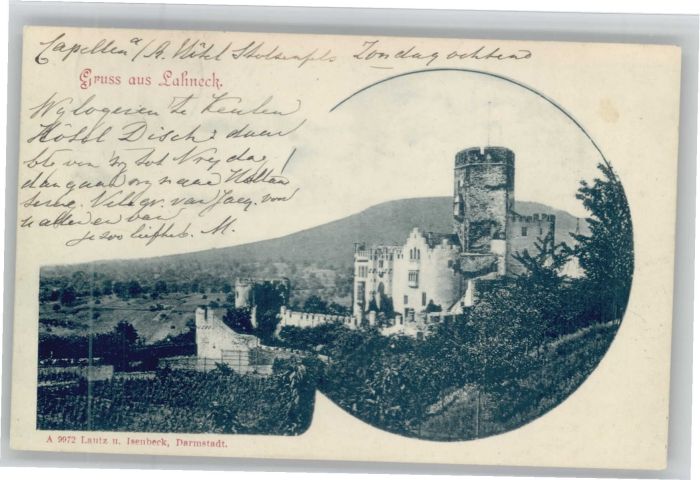 Capellen a/R. Hôtel Stolzenfels Zondag ochtend
Gruss aus Lahneck.
Wij logeren te Keulen
Hôtel Disch: daar
van tot Vrijdag!
dan gaan wij naar
Veel gr. van Jacq. voor
u allen en van
je zoo liefheb. M.
A 9972 Lautz u. Isenbeck, Darmstadt.